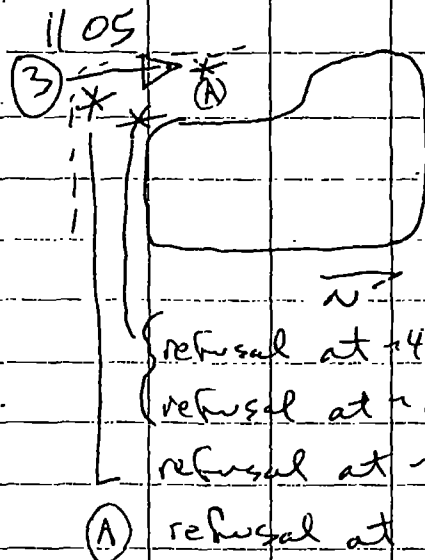 1105
3
A
N
refusal at ~4
refusal at ~
refusal at ~
A refusal at